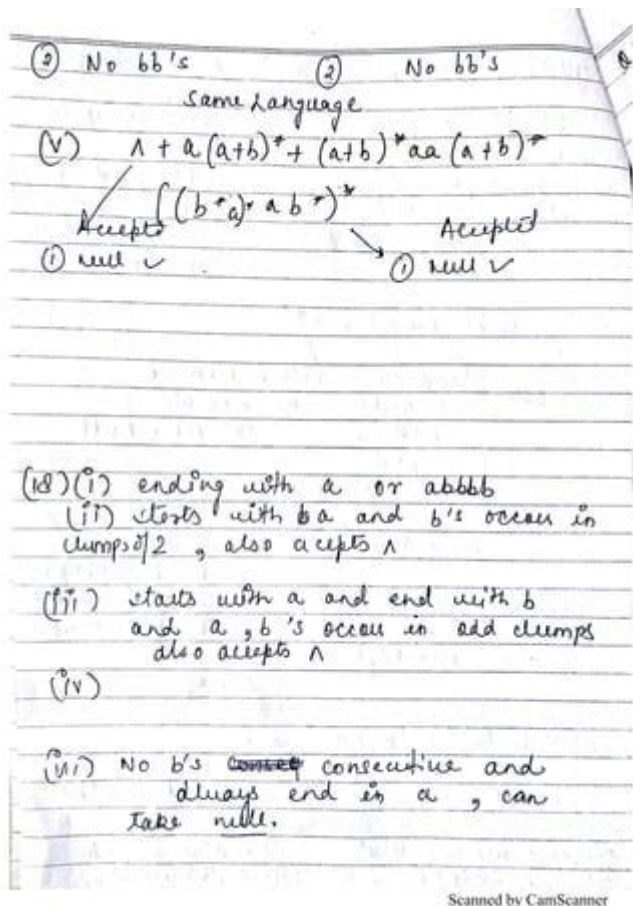 ② No bb's ② No bb's
Same Language
(V) Λ + a (a+b)* + (a+b)* aa (a+b)*
((b*a)* ab*)*
Accepts Accepts
① null ✓ ① null ✓
(18) (i) ending with a or abbbb
(ii) starts with a and b's occur in
clumps of 2, also accepts Λ
(iii) starts with a and end with b
and a, b's occur in odd clumps
also accepts Λ
(iv)
(vi) No b's consecutive and
always end in a, can
take null.
Scanned by CamScanner